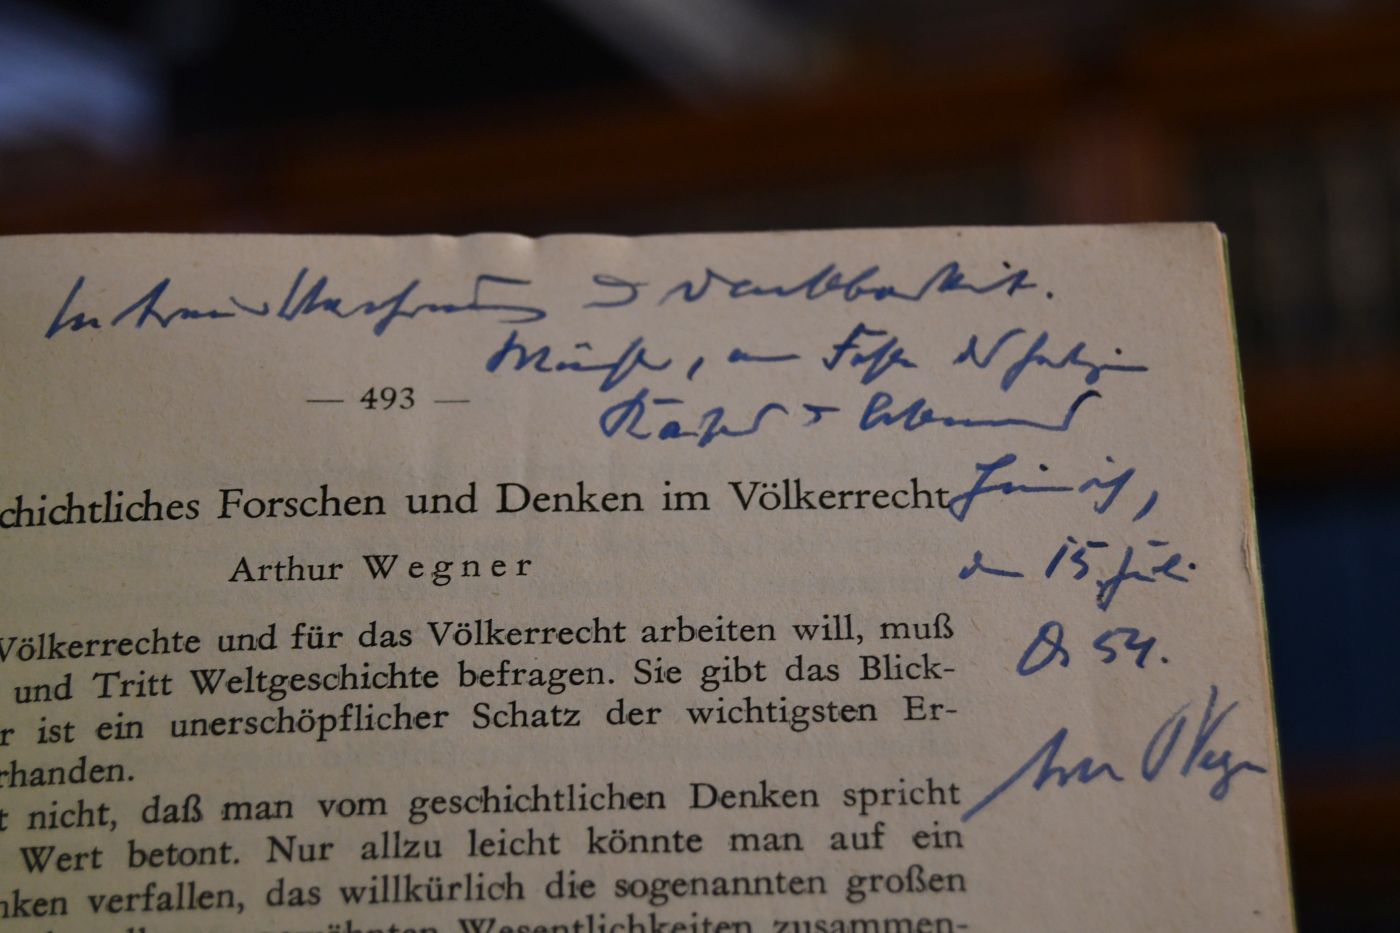 In treuer Verehrung & Dankbarkeit.
Münster, am Feste des heiligen
Kaisers & Bekenners
Heinrich,
den 15. Juli
54.
Wegner
— 493 —
chichtliches Forschen und Denken im Völkerrecht
Arthur Wegner
Völkerrechte und für das Völkerrecht arbeiten will, muß
und Tritt Weltgeschichte befragen. Sie gibt das Blick-
r ist ein unerschöpflicher Schatz der wichtigsten Er-
rhanden.
t nicht, daß man vom geschichtlichen Denken spricht
Wert betont. Nur allzu leicht könnte man auf ein
nken verfallen, das willkürlich die sogenannten großen
Wesentlichkeiten zusammen-